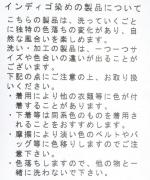 インディゴ染めの製品について
こちらの製品は、洗っていくごと
に独特の色落ちの変化があり、自
然な風合いを楽しめます。
洗い・加工の製品は、一つ一つサ
イズや色合いの違いが出ることが
ございます。
下記の点にご注意の上、お取り扱
いください。
・着用により他の衣類等に色が付
着することがあります。
・下着等は同系色のものを着用さ
れることをおすすめします。
・摩擦により淡い色のベルトやバ
ッグ等に色移りしますのでご注
意下さい。
・色落ちしますので、他の物と一
緒に洗わないで下さい。